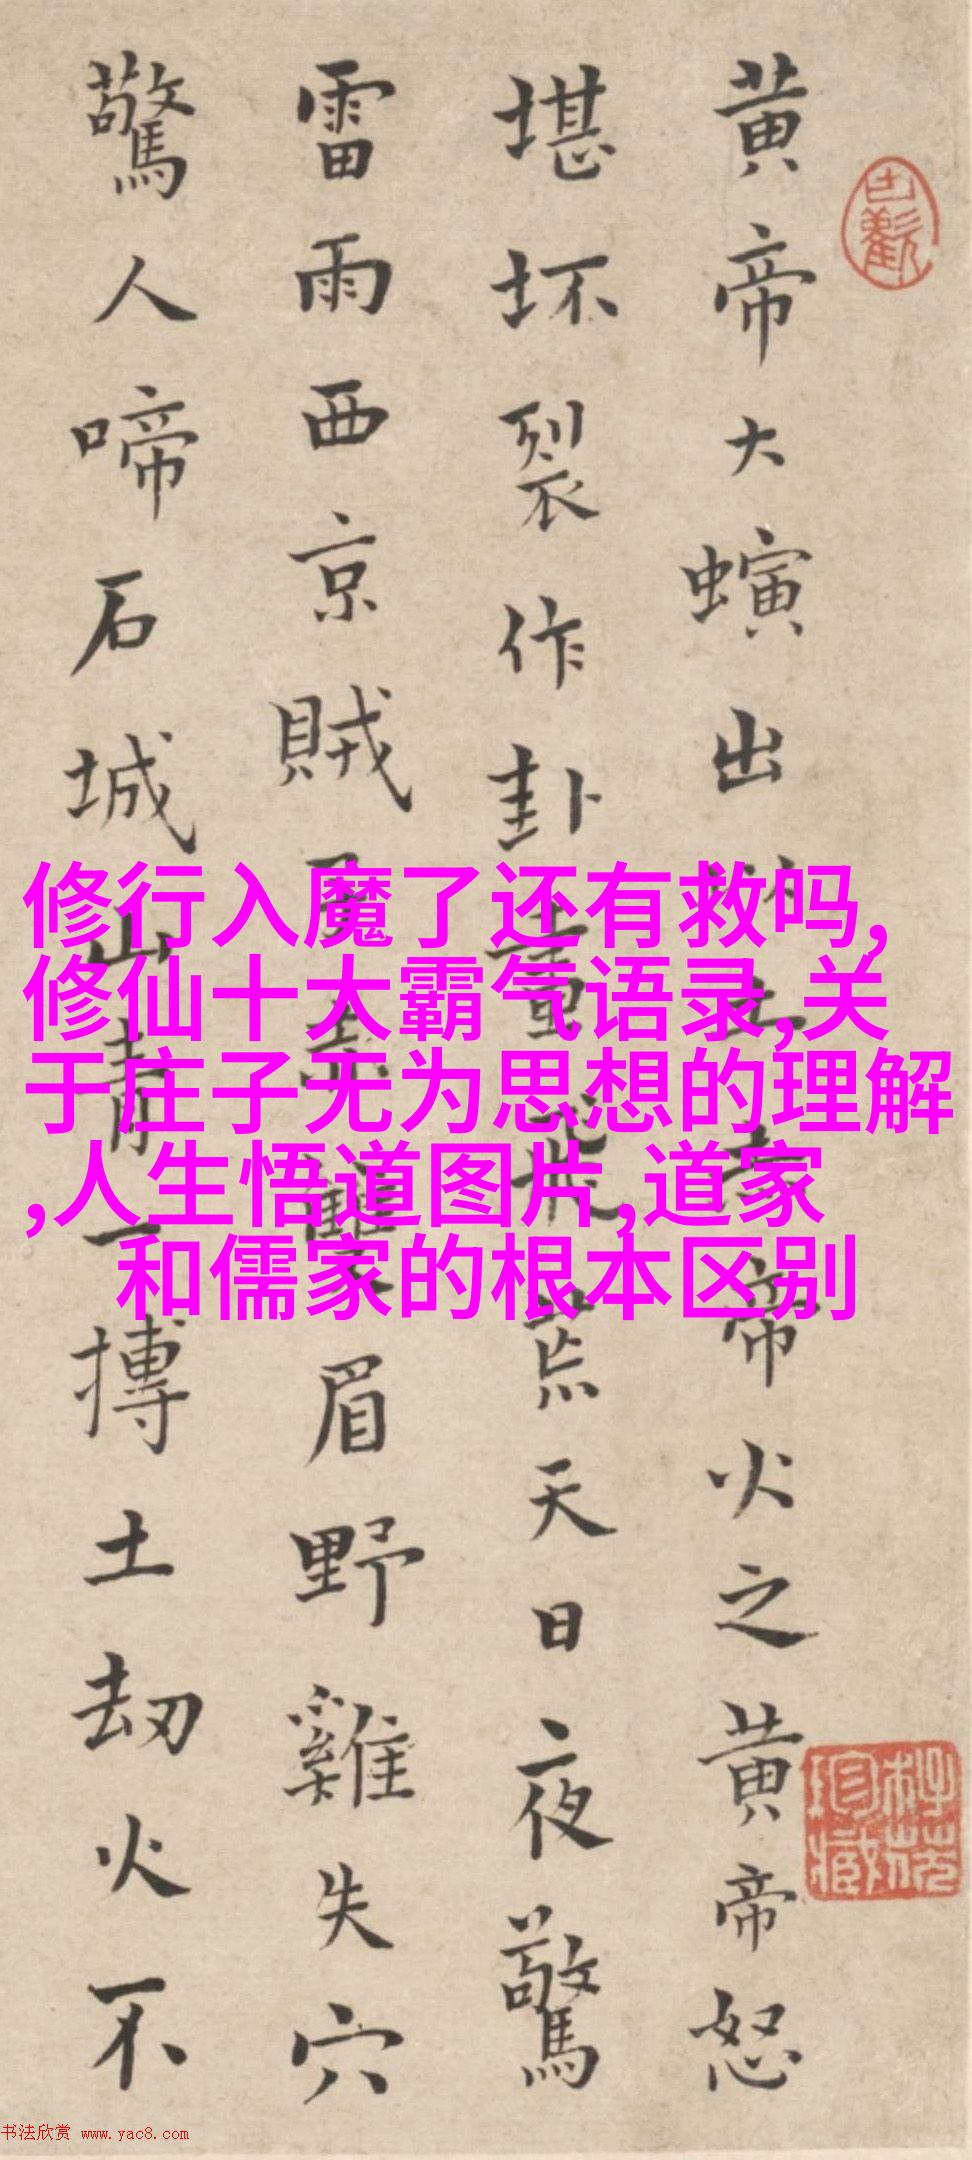 黄帝大螾出帝火之黄帝怒
堪坏裂作卦天日夜驚
雷雨西京賊眉野雞失穴
驚人啼石城山青一摶土劫火不
修行入魔了还有救吗,
修仙十大霸气语录,关
于庄子无为思想的理解
,人生悟道图片,道家
和儒家的根本区别
书法欣赏 www.yac8.com